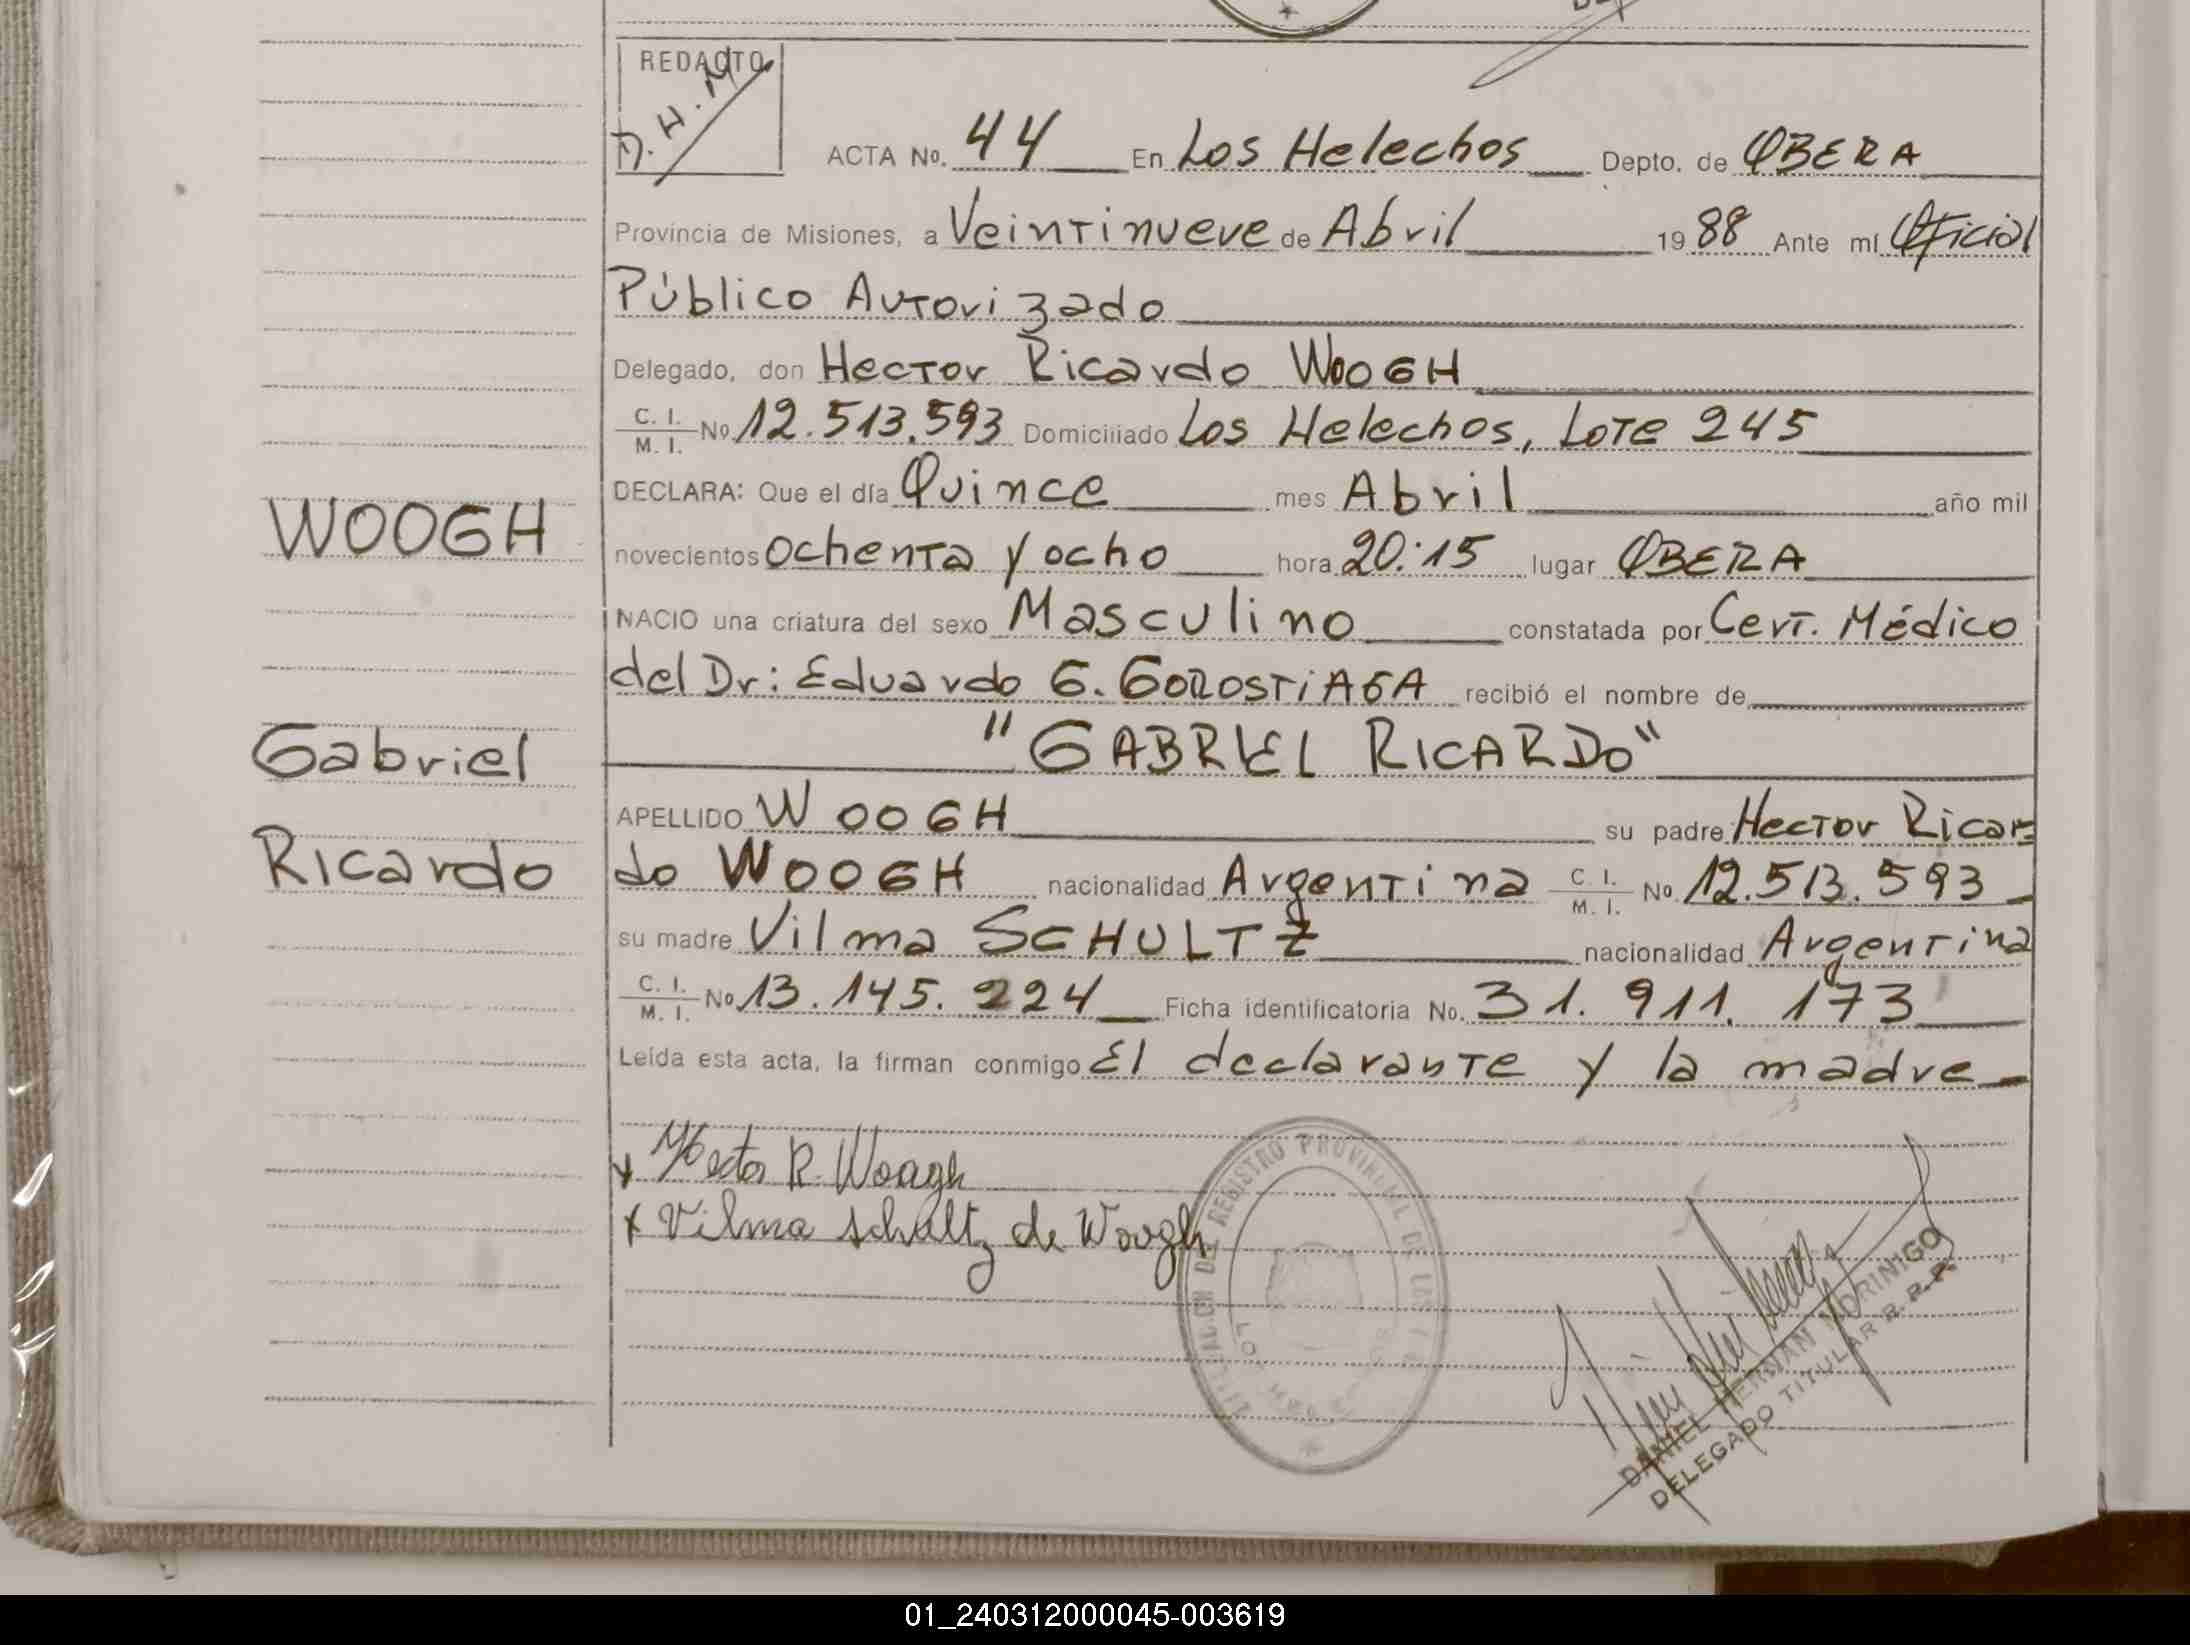 REDACTO
D. H. M
ACTA No. 44 En Los Helechos Depto. de OBERA
Provincia de Misiones, a Veintinueve de Abril 19 88 Ante mí Oficial
Público Autorizado
Delegado, don Hector Ricardo WOOGH
C. I. / M. I. No 12.513.593 Domiciliado Los Helechos, Lote 245
DECLARA: Que el día Quince mes Abril año mil
novecientos ochenta y ocho hora 20:15 lugar OBERA
NACIO una criatura del sexo Masculino constatada por Cert. Médico
del Dr: Eduardo G. GOROSTIAGA recibió el nombre de
"GABRIEL RICARDO"
APELLIDO WOOGH su padre Hector Ricar=
do WOOGH nacionalidad Argentina C. I. / M. I. No. 12.513.593
su madre Vilma SCHULTZ nacionalidad Argentina
C. I. / M. I. No 13.145.224 Ficha identificatoria No. 31.911.173
Leída esta acta, la firman conmigo El declarante y la madre
x Hector R. Woogh
x Vilma Schultz de Woogh
WOOGH
Gabriel
Ricardo
REGISTRO PROVINCIAL DE LAS
DANIEL HERNAN MORINIGO
DELEGADO TITULAR R. P. P.
01_240312000045-003619